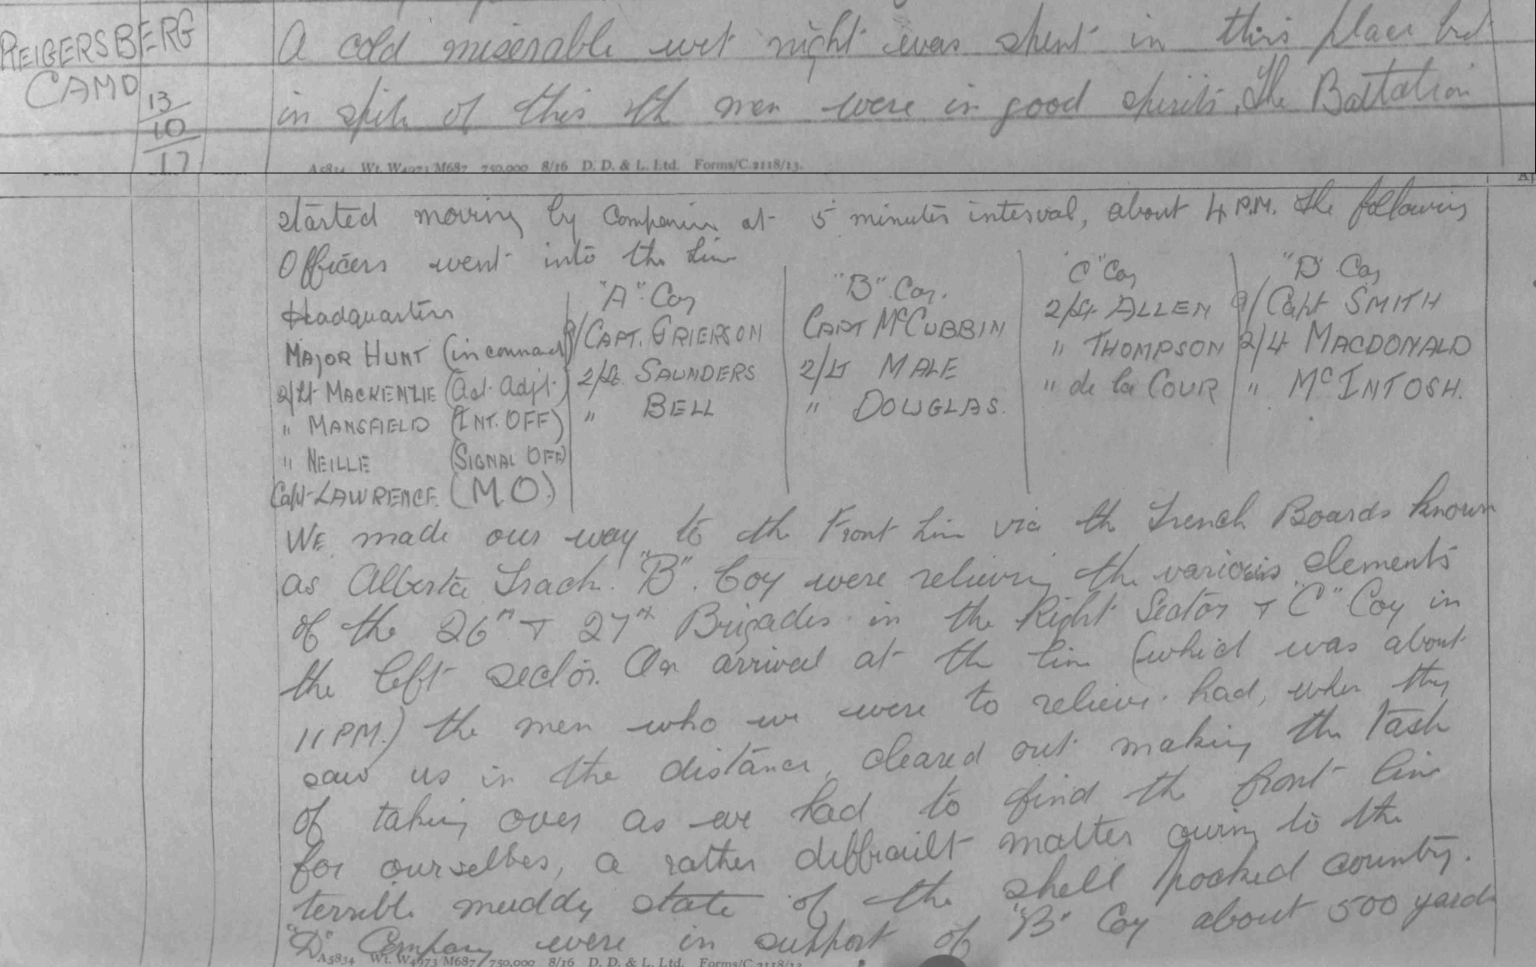 REIGERSBERG
CAMP
13/10/17
A cold miserable wet night was spent in this place but
in spite of this the men were in good spirits. The Battalion
A5834 Wt. W4973/M687 750,000 8/16 D. D. & L. Ltd. Forms/C.2118/13.
started moving by Companies at 5 minutes interval, about 4 P.M. The following
Officers went into the Line
Headquarters
MAJOR HUNT (in command)
2/Lt MACKENZIE (Act. Adjt.)
" MANSFIELD (INT. OFF)
" NEILLE (SIGNAL OFF)
Capt LAWRENCE (M.O.)
"A" Coy
A/CAPT. GRIERSON
2/Lt. SAUNDERS
" BELL
"B" Coy.
CAPT McCUBBIN
2/Lt MALE
" DOUGLAS.
"C" Coy
2/Lt ALLEN
" THOMPSON
" de la COUR
"D" Coy
A/Capt SMITH
2/Lt MACDONALD
" McINTOSH.
WE made our way to the Front Line via the Trench Boards known
as Alberta Track. "B". Coy were relieving the various elements
of the 26th & 27th Brigades in the Right Sector & "C" Coy in
the left sector. On arrival at the Line (which was about
11 PM.) the men who we were to relieve had, when they
saw us in the distance, cleared out making the task
of taking over as we had to find the front line
for ourselves, a rather difficult matter owing to the
terrible muddy state of the shell pocked country.
"D" Company were in support of "B" Coy about 500 yards
A5834 Wt. W4973/M687 750,000 8/16 D. D. & L. Ltd. Forms/C.2118/13